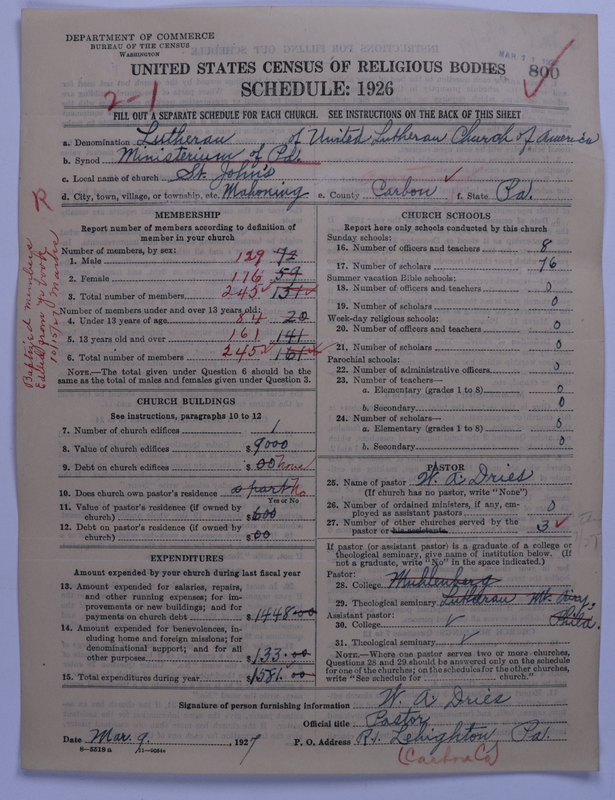 DEPARTMENT OF COMMERCE
BUREAU OF THE CENSUS
WASHINGTON
UNITED STATES CENSUS OF RELIGIOUS BODIES 800
SCHEDULE: 1926
2-1
FILL OUT A SEPARATE SCHEDULE FOR EACH CHURCH. SEE INSTRUCTIONS ON THE BACK OF THIS SHEET
a. Denomination Lutheran of United Lutheran Church of America
b. Synod Ministerium of Pa.
c. Local name of church St. John's
d. City, town, village, or township, etc. Mahoning e. County Carbon f. State Pa.
R
Baptized members
Edited from yr book
10/15/27
MEMBERSHIP
Report number of members according to definition of
member in your church
Number of members, by sex:
1. Male 129 72
2. Female 116 59
3. Total number of members 245 131
Number of members under and over 13 years old:
4. Under 13 years of age 84 20
5. 13 years old and over 161 141
6. Total number of members 245 161
NOTE.—The total given under Question 6 should be the
same as the total of males and females given under Question 3.
CHURCH BUILDINGS
See instructions, paragraphs 10 to 12
7. Number of church edifices 1
8. Value of church edifices $ 9000
9. Debt on church edifices $ 00 none
10. Does church own pastor's residence a part No
Yes or No
11. Value of pastor's residence (if owned by
church) $ 600
12. Debt on pastor's residence (if owned by
church) $ 00
EXPENDITURES
Amount expended by your church during last fiscal year
13. Amount expended for salaries, repairs,
and other running expenses; for im-
provements or new buildings; and for
payments on church debt $ 1448.00
14. Amount expended for benevolences, in-
cluding home and foreign missions; for
denominational support; and for all
other purposes $ 133.00
15. Total expenditures during year $ 1581.00
CHURCH SCHOOLS
Report here only schools conducted by this church
Sunday schools:
16. Number of officers and teachers 8
17. Number of scholars 76
Summer vacation Bible schools:
18. Number of officers and teachers 0
19. Number of scholars 0
Week-day religious schools:
20. Number of officers and teachers 0
21. Number of scholars 0
Parochial schools:
22. Number of administrative officers 0
23. Number of teachers—
a. Elementary (grades 1 to 8) 0
b. Secondary 0
24. Number of scholars—
a. Elementary (grades 1 to 8) 0
b. Secondary 0
PASTOR
25. Name of pastor W. A. Dries
(If church has no pastor, write "None")
26. Number of ordained ministers, if any, em-
ployed as assistant pastors 0
27. Number of other churches served by the
pastor or his assistants 3
If pastor (or assistant pastor) is a graduate of a college or
theological seminary, give name of institution below. (If
not a graduate, write "No" in the space indicated.)
Pastor:
28. College Muhlenberg
29. Theological seminary Lutheran Mt. Airy,
Phila.
Assistant pastor:
30. College
31. Theological seminary
NOTE.—Where one pastor serves two or more churches,
Questions 28 and 29 should be answered only on the schedule
for one of the churches; on the schedules for the other churches,
write "See schedule for church."
Signature of person furnishing information W. A. Dries
Official title Pastor
Date Mar. 9, 1927 P. O. Address R.1. Lehighton Pa.
(Carbon Co)
8—5518a 11—9564a